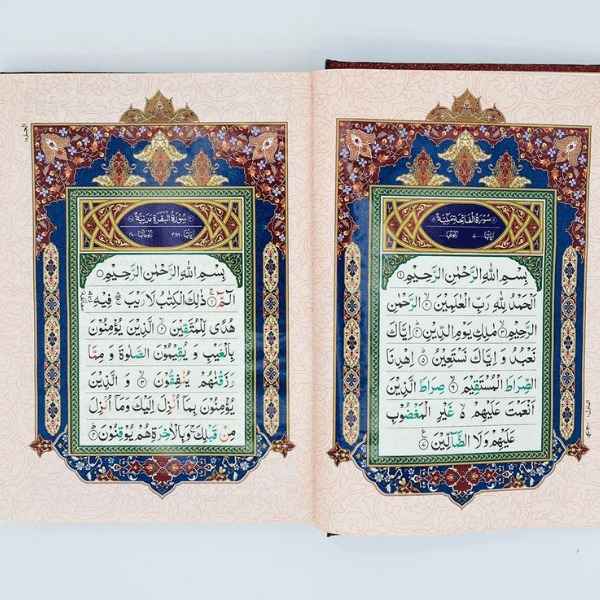 سورة الفاتحة مكية
بِسْمِ اللهِ الرَّحْمٰنِ الرَّحِيْمِ
اَلْحَمْدُ لِلّٰهِ رَبِّ الْعٰلَمِيْنَ الرَّحْمٰنِ
الرَّحِيْمِ مٰلِكِ يَوْمِ الدِّيْنِ اِيَّاكَ
نَعْبُدُ وَ اِيَّاكَ نَسْتَعِيْنُ اِهْدِنَا
الصِّرَاطَ الْمُسْتَقِيْمَ صِرَاطَ الَّذِيْنَ
اَنْعَمْتَ عَلَيْهِمْ غَيْرِ الْمَغْضُوْبِ
عَلَيْهِمْ وَلَا الضَّآلِّيْنَ
سورة البقرة مدنية
بِسْمِ اللهِ الرَّحْمٰنِ الرَّحِيْمِ
الٓمّٓ ذٰلِكَ الْكِتٰبُ لَا رَيْبَ فِيْهِ
هُدًى لِّلْمُتَّقِيْنَ الَّذِيْنَ يُؤْمِنُوْنَ
بِالْغَيْبِ وَ يُقِيْمُوْنَ الصَّلٰوةَ وَ مِمَّا
رَزَقْنٰهُمْ يُنْفِقُوْنَ وَ الَّذِيْنَ
يُؤْمِنُوْنَ بِمَآ اُنْزِلَ اِلَيْكَ وَمَآ اُنْزِلَ
مِنْ قَبْلِكَ وَبِالْاٰخِرَةِ هُمْ يُوْقِنُوْنَ